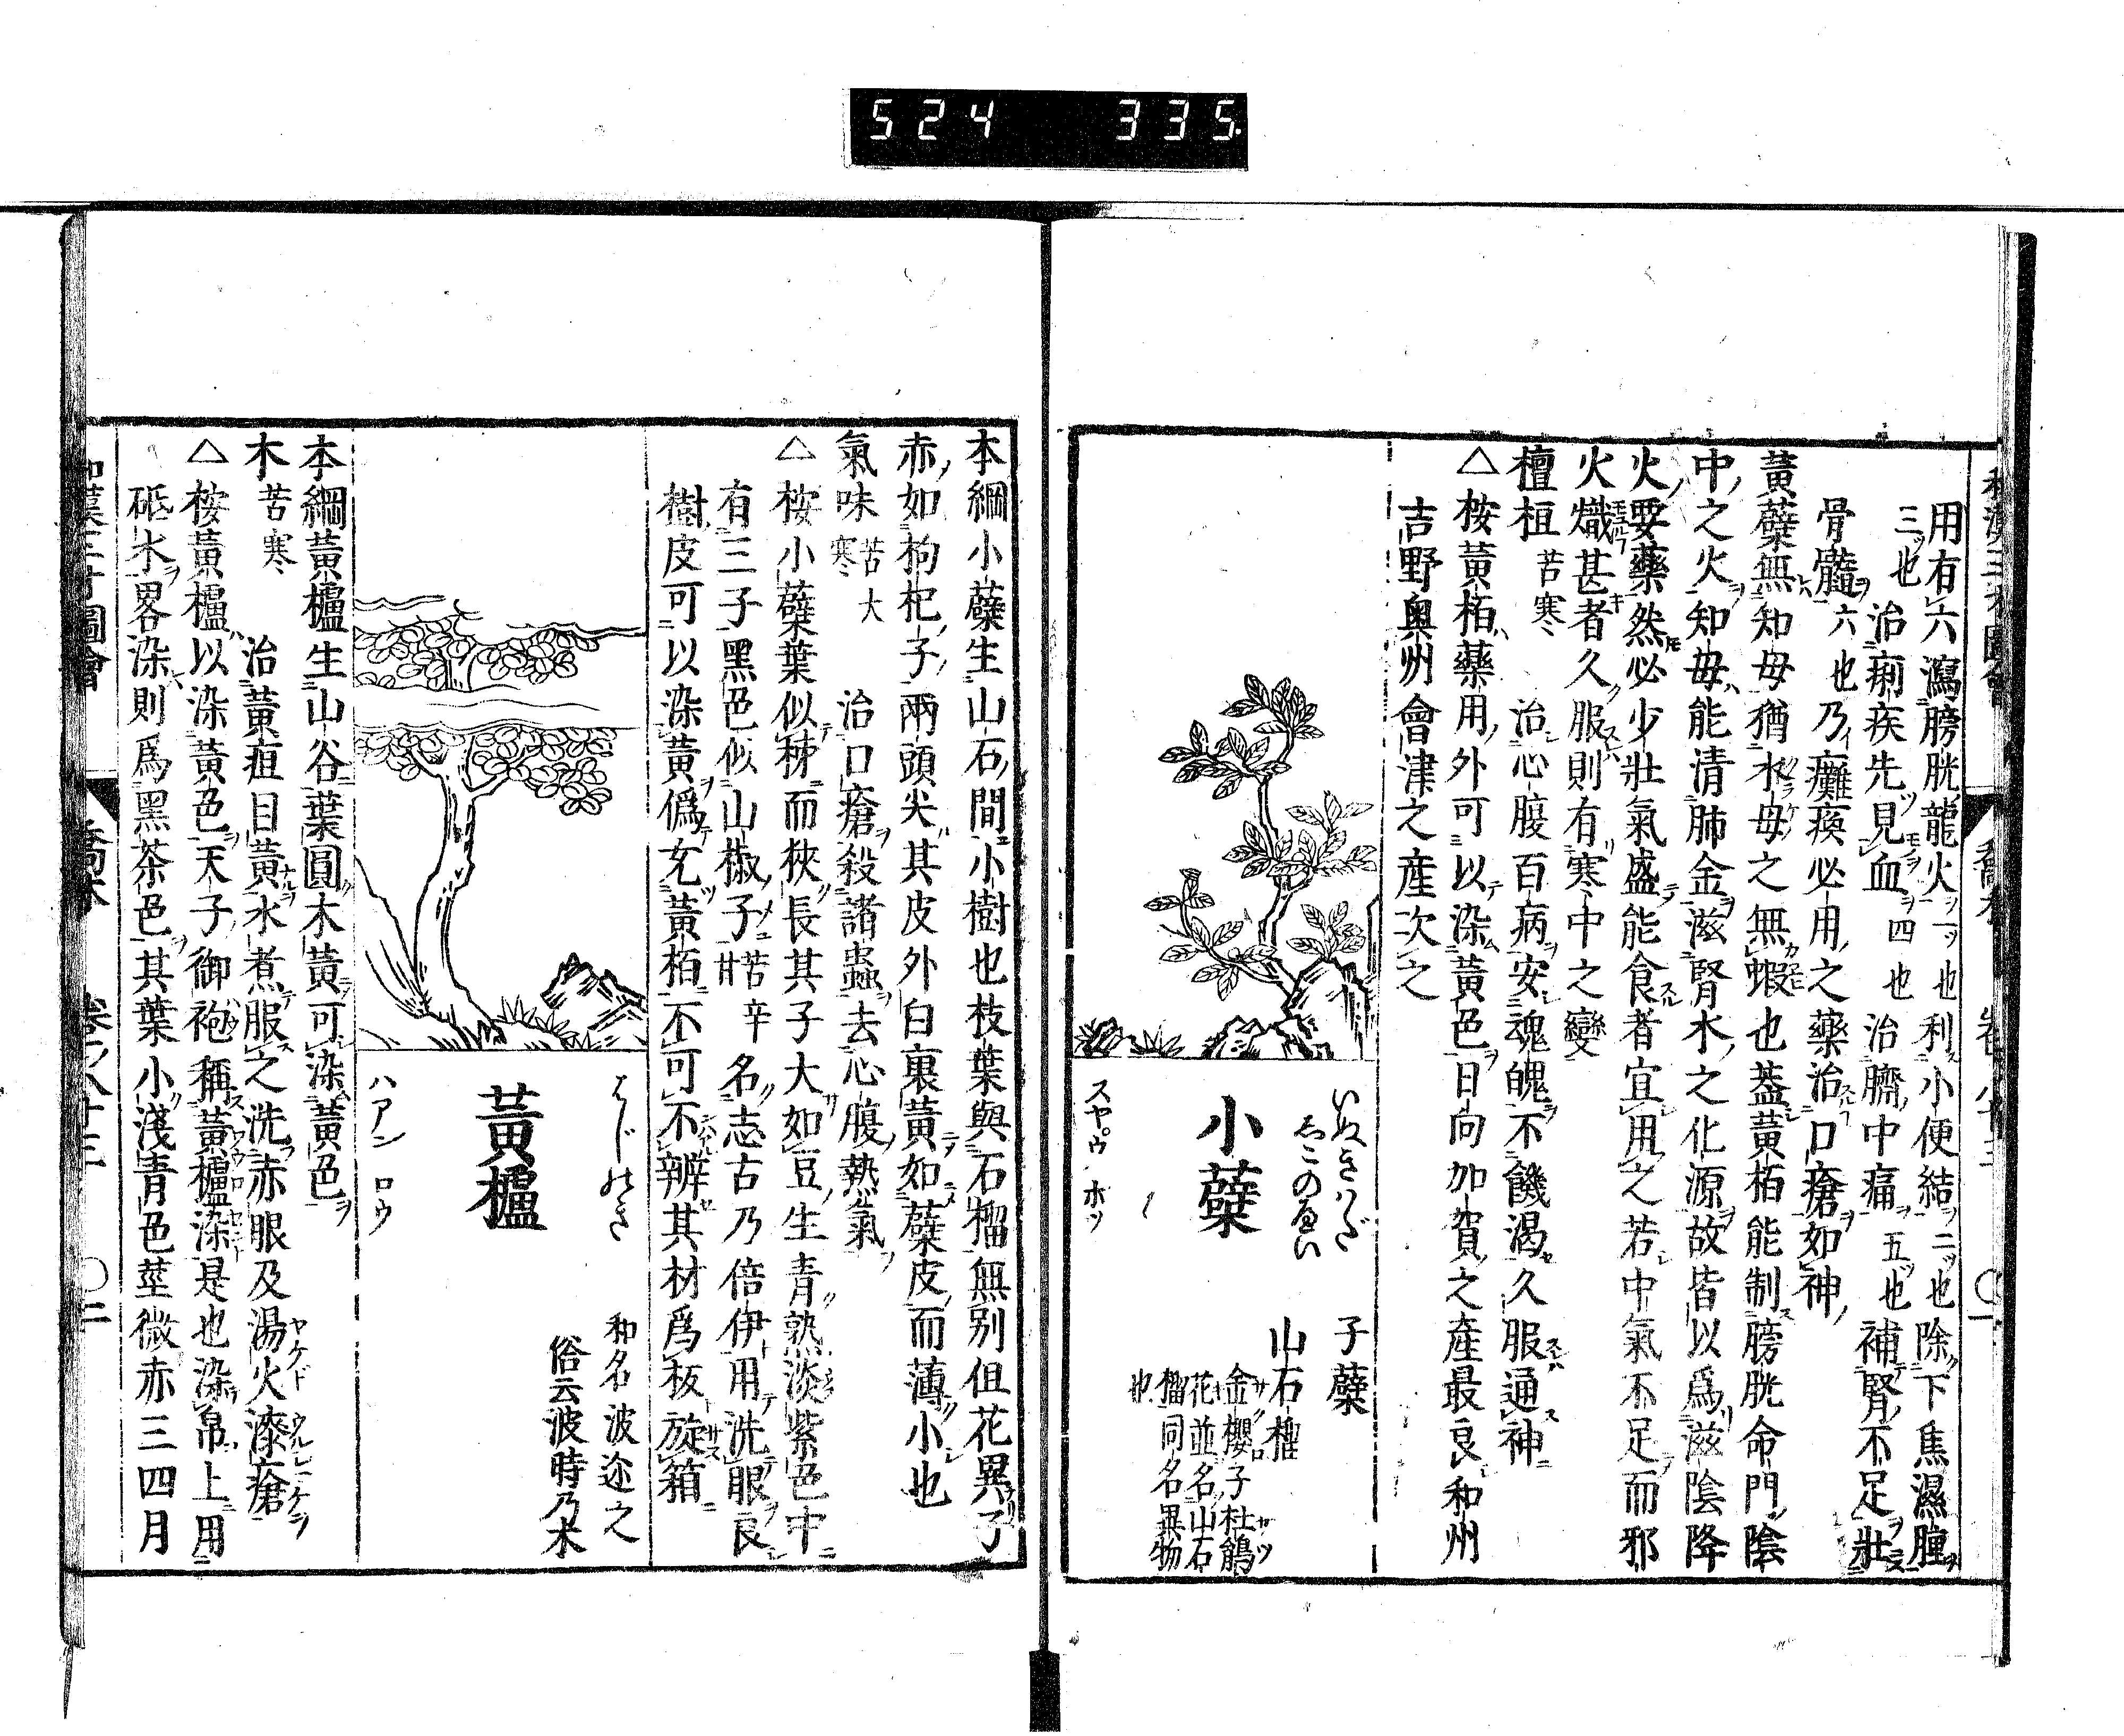 524 335
用有六瀉膀胱龍火一也利小便結二也除下焦濕腫
三也治痢疾先見血四也治臍中痛五也補腎不足壯
骨髓六也乃癱瘓必用之藥治口瘡如神
黃蘗無知母猶水母之無蝦也葢黃栢能制膀胱命門陰
中之火知母能清肺金滋腎水之化源故皆以爲滋陰降
火要藥然必少壯氣盛能食者宜用之若中氣不足而邪
火熾甚者久服則有寒中之變
檀桓苦寒 治心腹百病安魂魄不饑渴久服通神
△桉黃栢藥用外可以染黃色日向加賀之產最良和州
吉野奥州會津之產次之
いぬきはだ
小蘗
スヤ゚ウ ホッ
子蘗
山石榴
金櫻子杜鵑
花並名山石
榴同名異物
也
本綱小蘗生山石間小樹也枝葉與石榴無别但花異子
赤如枸杞子兩頭尖其皮外白裏黃如蘗皮而薄小也
氣味苦大寒 治口瘡殺諸蟲去心腹熱氣
△桉小蘗葉似𣗥而狹長其子大如豆生青熟淡紫色中
有三子黑色似山椒子苦辛甘名志古乃倍伊用洗眼良
樹皮可以染黃僞充黃栢不可不辨其材爲板旋箱
はじのき
黃櫨
ハアン ロウ
和名波迩之
俗云波時乃木
本綱黃櫨生山谷葉圓木黃可染黃色
木苦寒 治黃疸目黃水煮服之洗赤眼及湯火漆瘡
△桉黃櫨以染黃色天子御袍稱黃櫨染是也染帛上用
砥水畧染則爲黑茶色其葉小淺青色莖微赤三四月